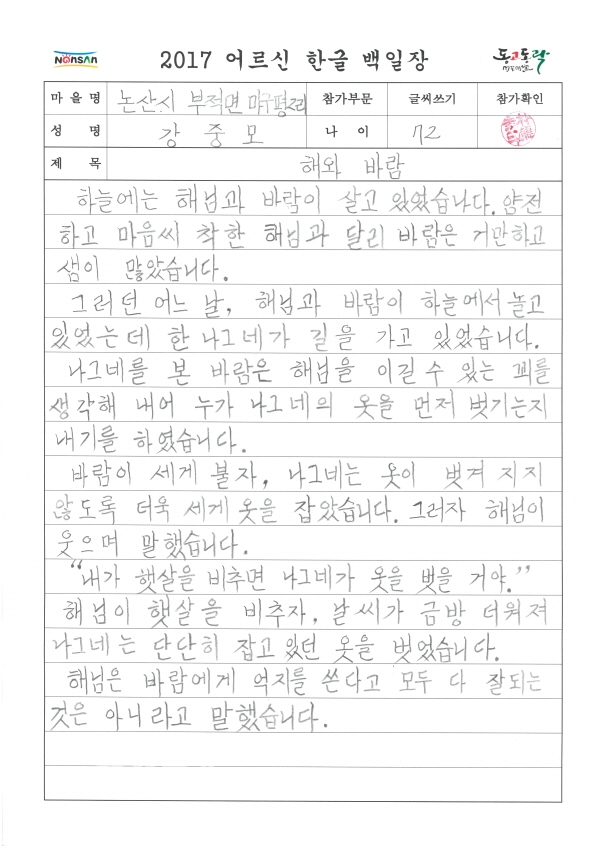 NonSAn
2017 어르신 한글 백일장
동고동락
마 을 명 논산시 부적면 마구평2리 참가부문 글씨쓰기 참가확인
성 명 강 중 모 나 이 72
제 목 해와 바람
하늘에는 해님과 바람이 살고 있었습니다. 얌전
하고 마음씨 착한 해님과 달리 바람은 거만하고
샘이 많았습니다.
그러던 어느 날, 해님과 바람이 하늘에서 놀고
있었는데 한 나그네가 길을 가고 있었습니다.
나그네를 본 바람은 해님을 이길 수 있는 꾀를
생각해 내어 누가 나그네의 옷을 먼저 벗기는지
내기를 하였습니다.
바람이 세게 불자, 나그네는 옷이 벗겨 지지
않도록 더욱 세게 옷을 잡았습니다. 그러자 해님이
웃으며 말했습니다.
“내가 햇살을 비추면 나그네가 옷을 벗을 거야.”
해님이 햇살을 비추자, 날씨가 금방 더워져
나그네는 단단히 잡고 있던 옷을 벗었습니다.
해님은 바람에게 억지를 쓴다고 모두 다 잘되는
것은 아니라고 말했습니다.